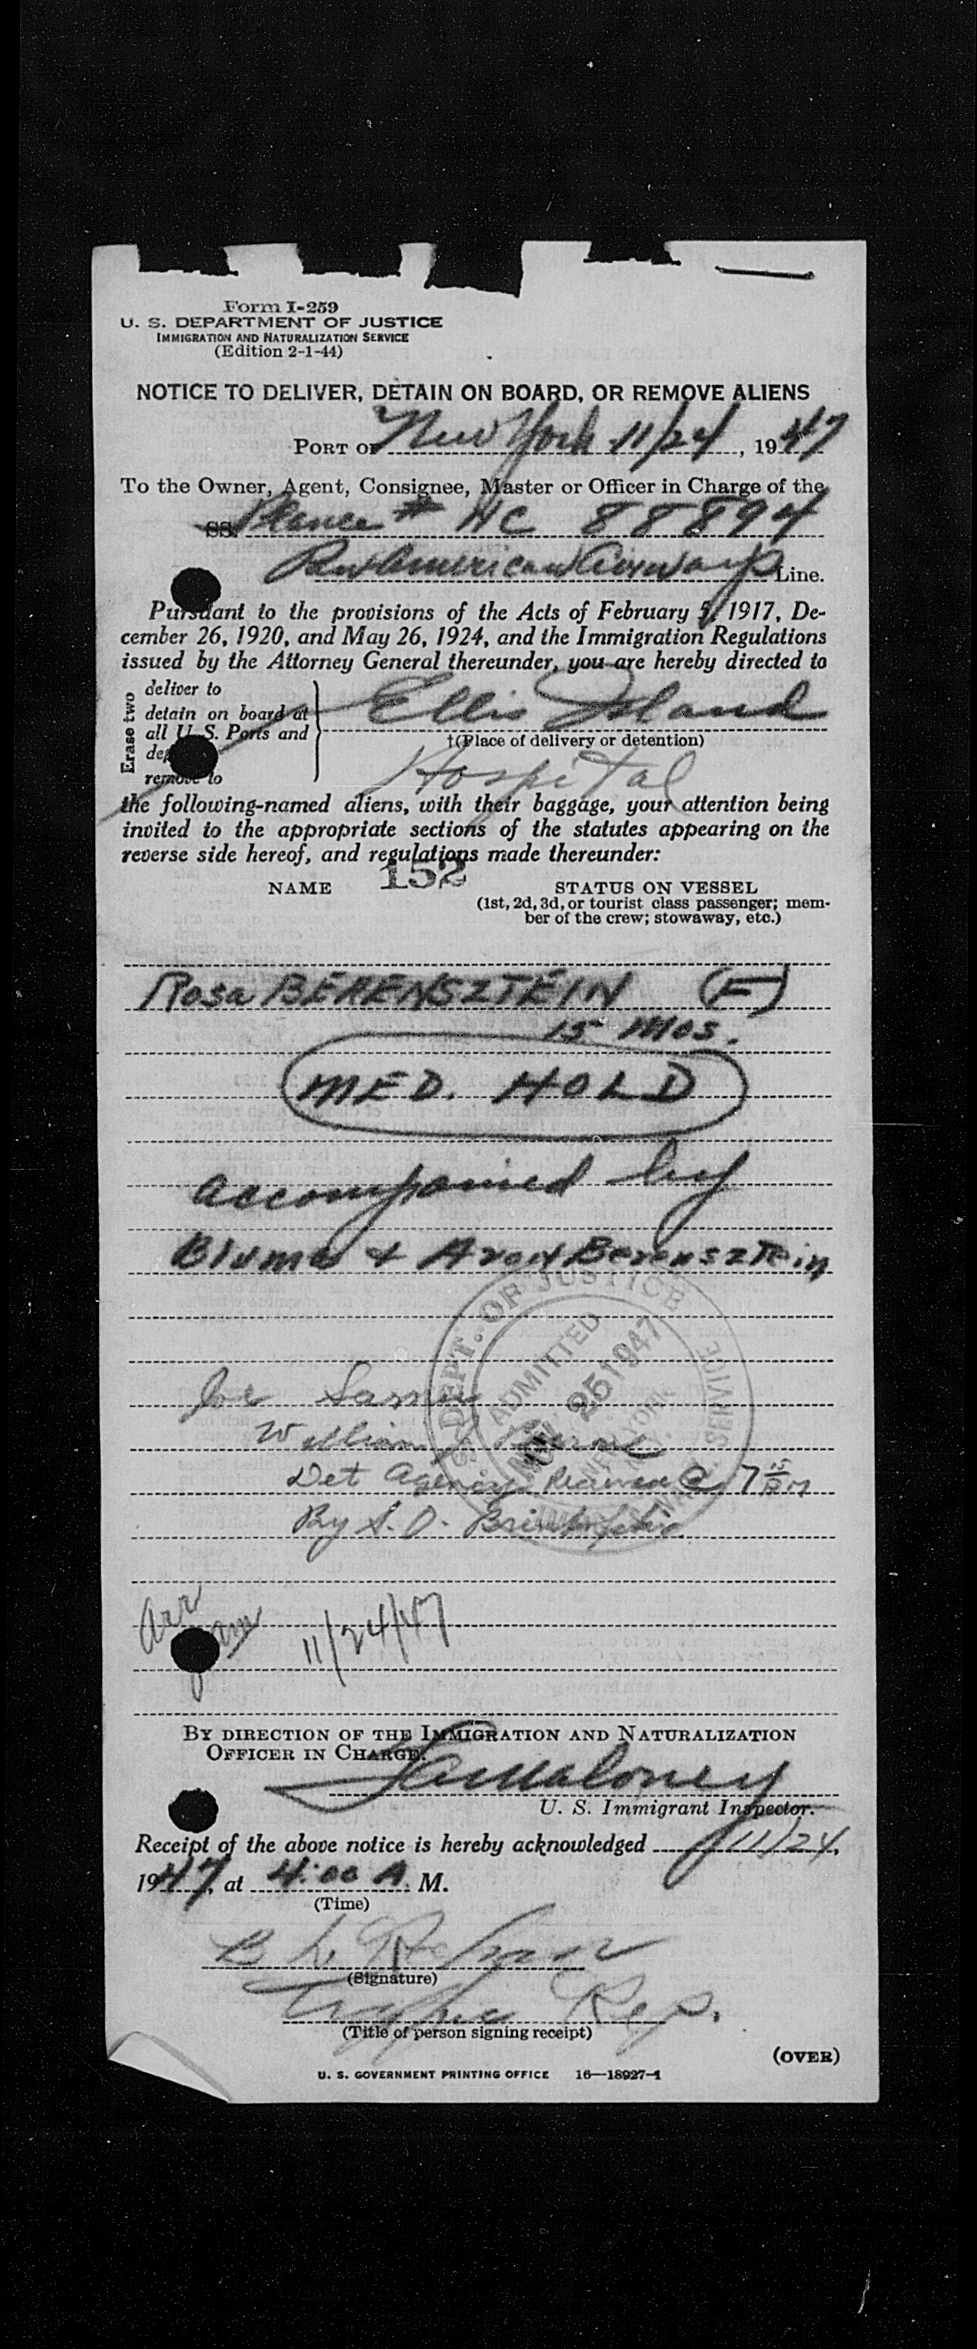 Form I-259
U. S. DEPARTMENT OF JUSTICE
IMMIGRATION AND NATURALIZATION SERVICE
(Edition 2-1-44)
NOTICE TO DELIVER, DETAIN ON BOARD, OR REMOVE ALIENS
PORT OF New York 11/24, 1947
To the Owner, Agent, Consignee, Master or Officer in Charge of the
SS. # NC 88894
Pan American Airways Line.
Pursuant to the provisions of the Acts of February 5, 1917, De-
cember 26, 1920, and May 26, 1924, and the Immigration Regulations
issued by the Attorney General thereunder, you are hereby directed to
Erase two
deliver to
detain on board at
all U. S. Ports and
remove to
Ellis Island
†(Place of delivery or detention)
Hospital
the following-named aliens, with their baggage, your attention being
invited to the appropriate sections of the statutes appearing on the
reverse side hereof, and regulations made thereunder:
152
NAME
STATUS ON VESSEL
(1st, 2d, 3d, or tourist class passenger; mem-
ber of the crew; stowaway, etc.)
Rosa BERENSZTEIN (F)
15 MOS.
MED. HOLD
accompanied by
Bluma + Aron Berensztein
DEPT. OF JUSTICE
ADMITTED
NOV 25 1947
NEW YORK
Joe
William J
Det Agency @ 7 15 PM
By S. O.
Arr
11/24/47
BY DIRECTION OF THE IMMIGRATION AND NATURALIZATION
OFFICER IN CHARGE.
Maloney
U. S. Immigrant Inspector.
Receipt of the above notice is hereby acknowledged 11/24,
1947, at 4:00 A. M.
(Time)
(Signature)
Traffic Rep.
(Title of person signing receipt)
(OVER)
U. S. GOVERNMENT PRINTING OFFICE 16—18927-1